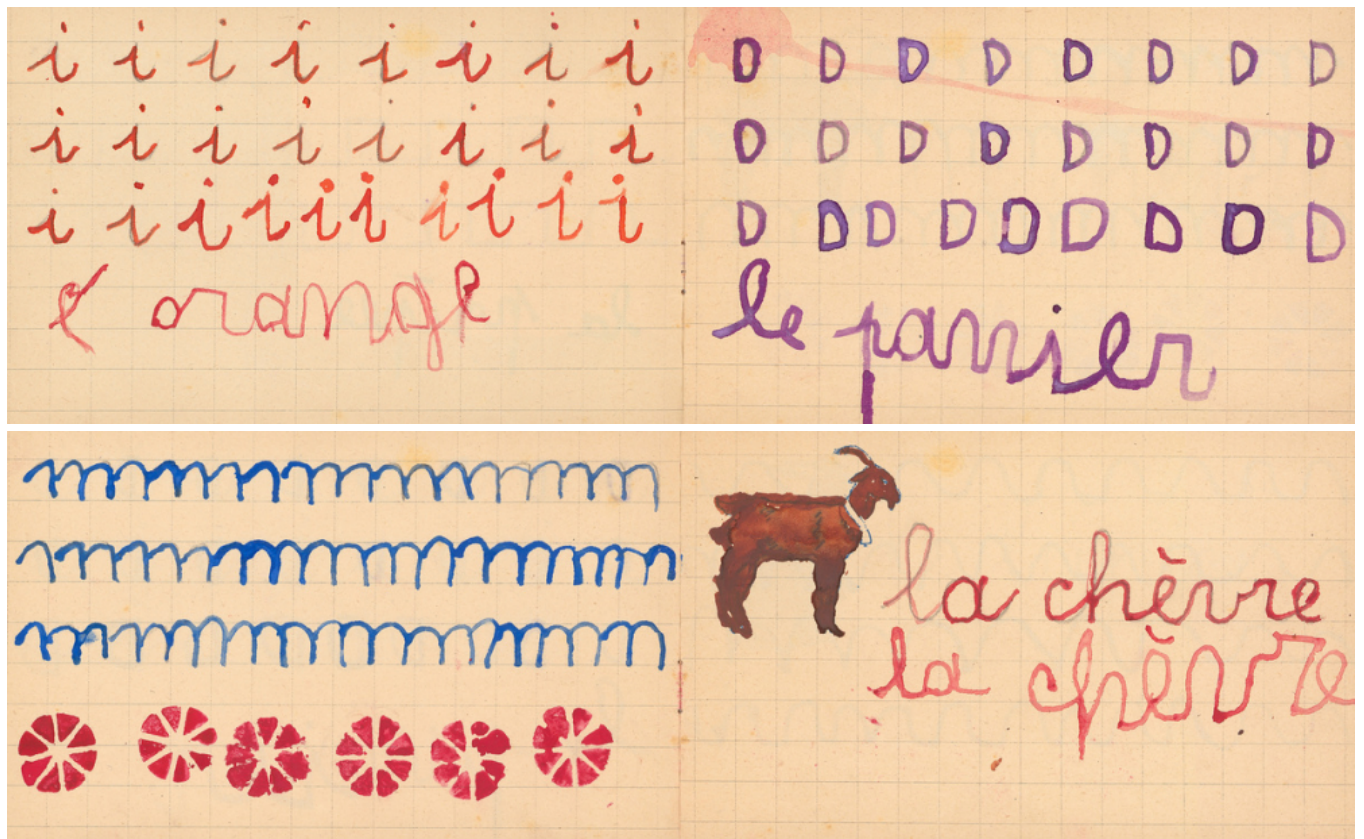 i i i i i i i i
i i i i i i i i
i i i i i i i i i i
l' orange
D D D D D D D D
D D D D D D D D
D D D D D D D D D
le panier
la chèvre
la chèvre